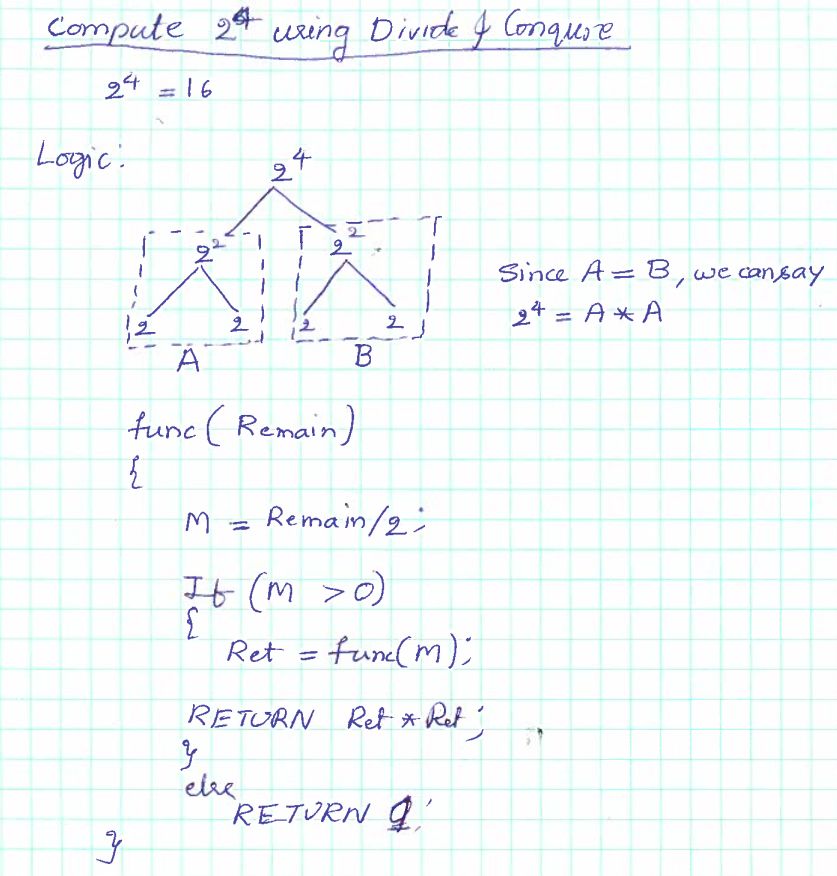 Compute 2⁴ using Divide & Conquire
2⁴ = 16
Logic:
2⁴
2² 2²
2 2 2 2
A B
Since A = B, we can say
2⁴ = A * A
func ( Remain )
{
M = Remain/2;
If (M > 0)
{
Ret = func(M);
RETURN Ret * Ret;
}
else
RETURN
}